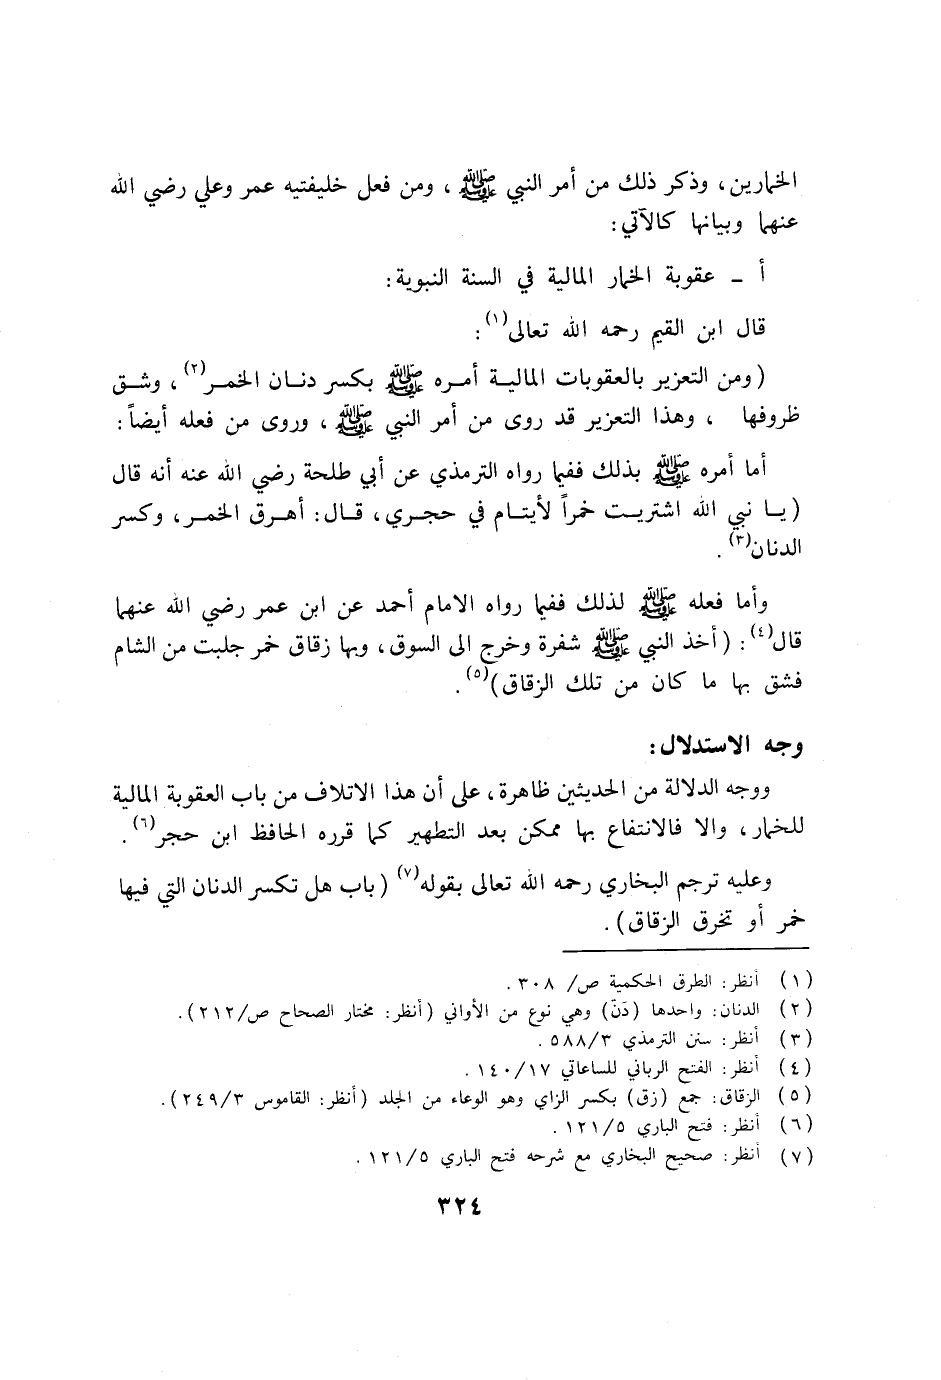 الخمارين، وذكر ذلك من أمر النبي ﷺ ، ومن فعل خليفتيه عمر وعلي رضي الله
عنهما وبيانها كالآتي:
أ ـ عقوبة الخمار المالية في السنة النبوية:
قال ابن القيم رحمه الله تعالى(١):
(ومن التعزير بالعقوبات المالية أمره ﷺ بكسر دنان الخمر(٢)، وشق
ظروفها ، وهذا التعزير قد روى من أمر النبي ﷺ ، وروى من فعله أيضاً:
أما أمره ﷺ بذلك ففيما رواه الترمذي عن أبي طلحة رضي الله عنه أنه قال
(يا نبي الله اشتريت خمراً لأيتام في حجري، قال: أهرق الخمر، وكسر
الدنان(٣).
وأما فعله ﷺ لذلك ففيما رواه الامام أحمد عن ابن عمر رضي الله عنهما
قال(٤): (أخذ النبي ﷺ شفرة وخرج الى السوق، وبها زقاق خمر جلبت من الشام
فشق بها ما كان من تلك الزقاق)(٥).
وجه الاستدلال:
ووجه الدلالة من الحديثين ظاهرة، على أن هذا الاتلاف من باب العقوبة المالية
للخمار، والا فالانتفاع بها ممكن بعد التطهير كما قرره الحافظ ابن حجر(٦).
وعليه ترجم البخاري رحمه الله تعالى بقوله(٧) (باب هل تكسر الدنان التي فيها
خمر أو تخرق الزقاق).
(١) أنظر: الطرق الحكمية ص/ ٣٠٨.
(٢) الدنان: واحدها (دَنّ) وهي نوع من الأواني (أنظر: مختار الصحاح ص/٢١٢).
(٣) أنظر: سنن الترمذي ٥٨٨/٣.
(٤) أنظر: الفتح الرباني للساعاتي ١٤٠/١٧.
(٥) الزقاق: جمع (زق) بكسر الزاي وهو الوعاء من الجلد (أنظر: القاموس ٢٤٩/٣).
(٦) أنظر: فتح الباري ١٢١/٥.
(٧) أنظر: صحيح البخاري مع شرحه فتح الباري ١٢١/٥.
٣٢٤